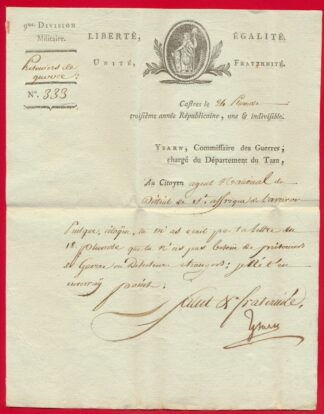 9me. DIVISION
Militaire.
LIBERTÉ, ÉGALITÉ.
UNITÉ, FRATERNITÉ.
Prisonniers de
guerre
N°. 333
Castres le 26
troisième année Républicaine, une & indivisible.
YSARN, Commissaire des Guerres;
chargé du Département du Tarn,
Au Citoyen agent National du
District de St. affrique de l'aveiron
Puisque, citoyen, tu m'as écrit par ta lettre du
18 pluviose que tu n'as pas besoin de prisonniers
de Guerre ou Déserteurs étrangers; je ne t'en
enverray point.
Salut & fraternité
Ysarn